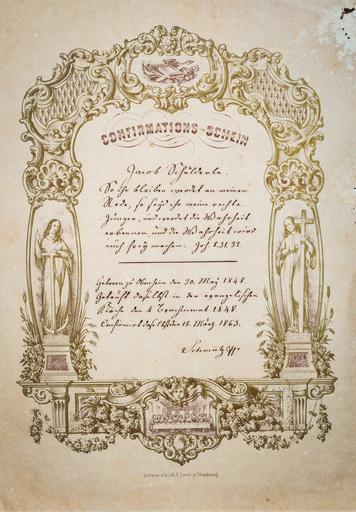 CONFIRMATIONS-SCHEIN
Jacob Schilderle.
So ihr bleiben werdet an meiner
Rede, so seyd ihr meine rechte
Jünger, und werdet die Wahrheit
erkennen und die Wahrheit wird
euch frey machen. Joh 8. 31. 32.
Geboren zu den 30. May 1848.
Getauft daselbst in der evangelischen
Kirche den 4 1848.
Confirmirt daselbst den 15. März 1863.
a Strasbourg